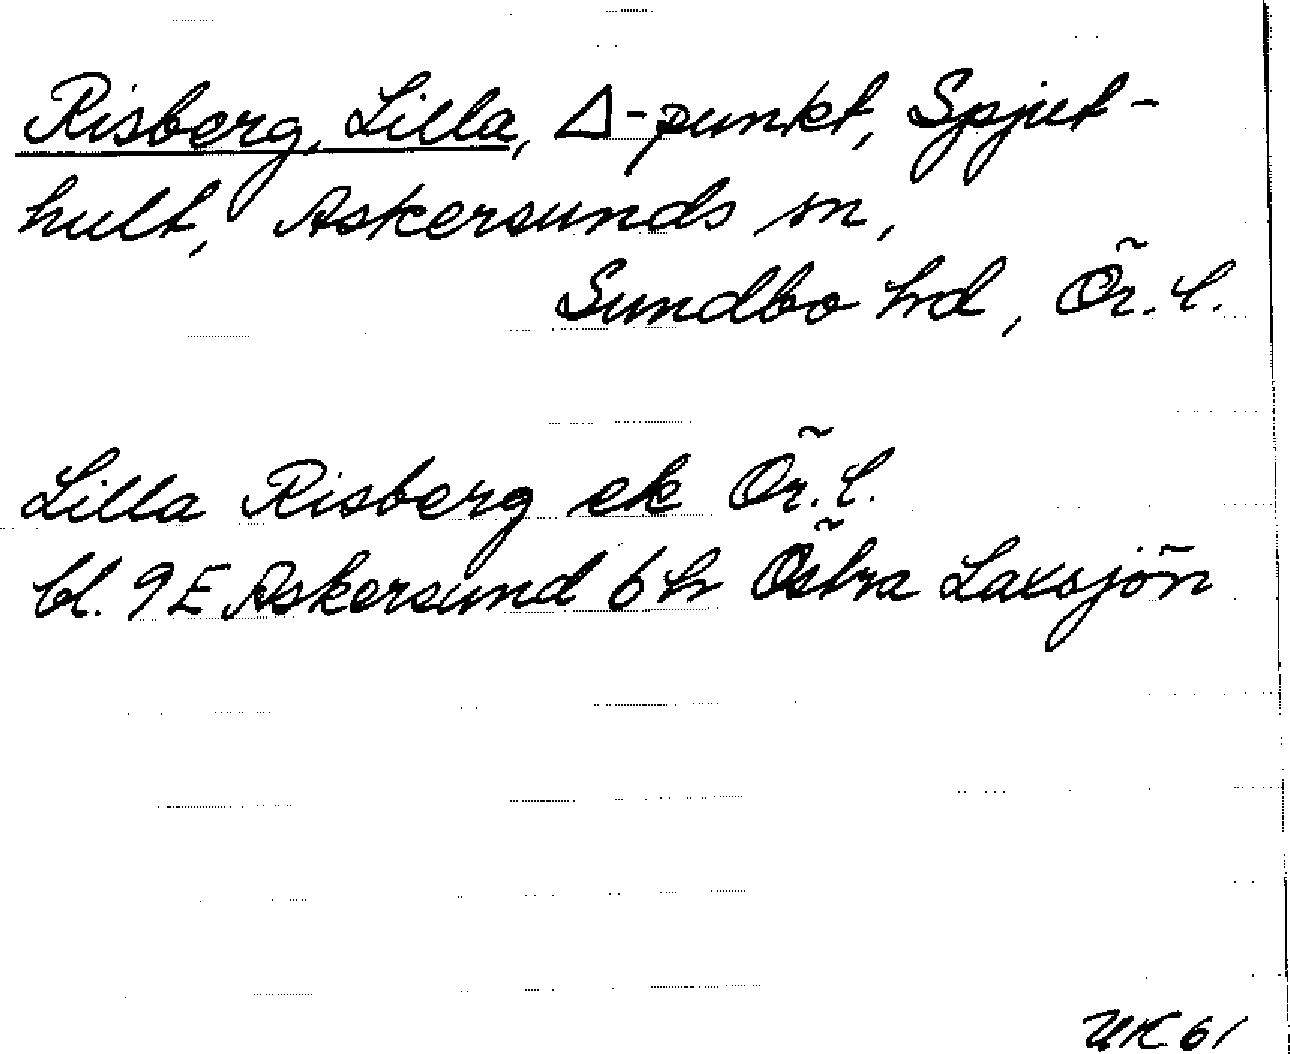 Risberg, Lilla, Δ-punkt, Spjut-
hult, Askersunds sn,
Sundbo hd, Ör. l.
Lilla Risberg ek Ör. l.
bl. 9E Askersund 6h Östra Laxsjön
UK 61